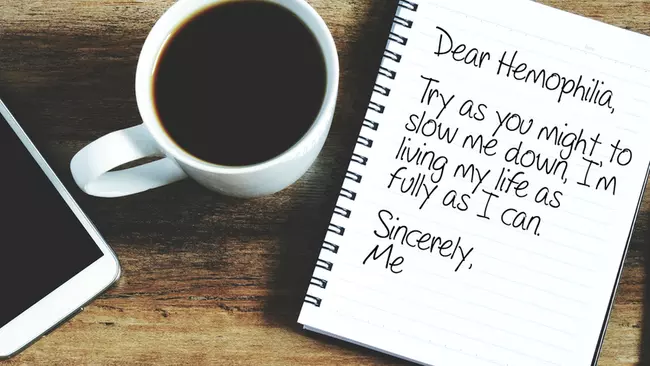 Dear Hemophilia,
Try as you might to
slow me down, I'm
living my life as
fully as I can.
Sincerely,
Me